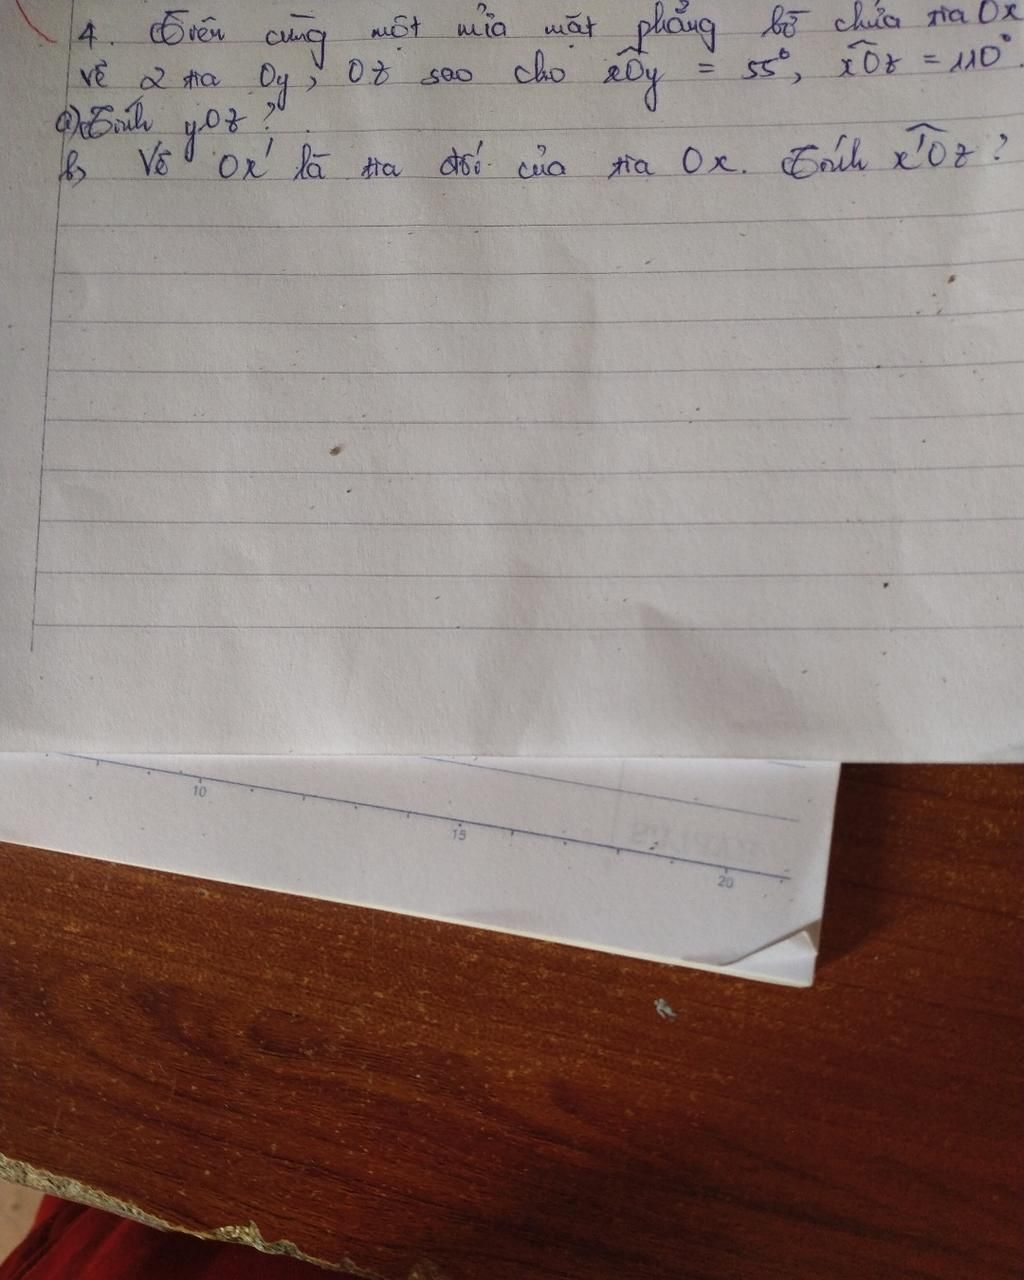 4. Trên cùng một nửa mặt phẳng bờ chứa tia Ox
vẽ 2 tia Oy, Oz sao cho xOy = 55°, xOz = 110°.
a) Tính yOz?
b, Vẽ Ox' là tia đối của tia Ox. Tính x'Oz?
10
15
20